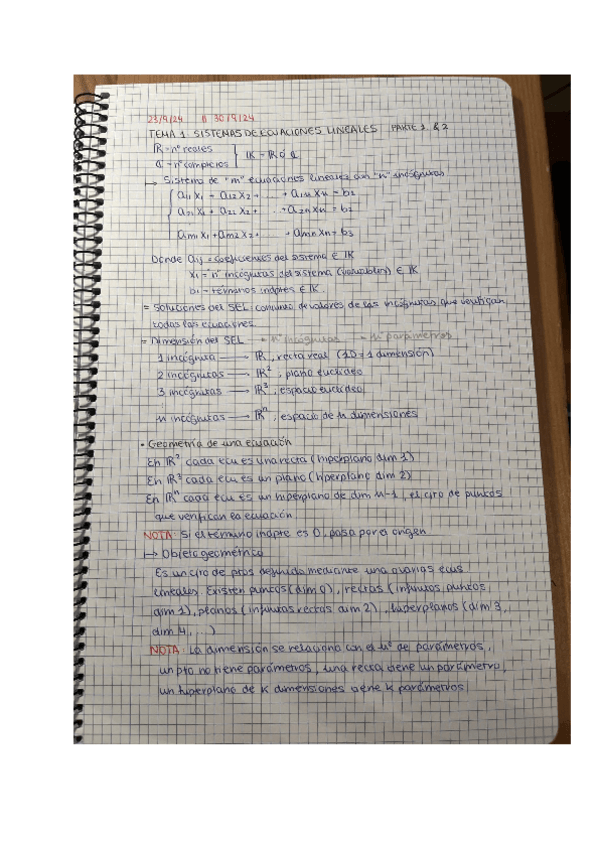 23/9/24 a 30/9/24
TEMA 1 SISTEMAS DE ECUACIONES LINEALES PARTE 1 & 2
ℝ = nº reales
ℂ = nº complejos } 𝕂 = ℝ ó ℂ
→ Sistema de "m" ecuaciones lineales con "n" incógnitas
a11 x1 + a12 x2 + ... + a1n xn = b1
a21 x1 + a22 x2 + ... + a2n xn = b2
am1 x1 + am2 x2 + ... + amn xn = b3
Donde aij = coeficientes del sistema ∈ 𝕂
xi = nº incógnitas del sistema (variables) ∈ 𝕂
bi = términos indptes ∈ 𝕂.
= Soluciones del SEL: conjunto de valores de las incógnitas que verifican
todas las ecuaciones.
= Dimensión del SEL nº incógnitas nº parámetros
1 incógnita → ℝ, recta real (1D = 1 dimensión)
2 incógnitas → ℝ², plano euclídeo
3 incógnitas → ℝ³, espacio euclídeo
n incógnitas → ℝⁿ, espacio de n dimensiones
• Geometría de una ecuación
En ℝ² cada ecu es una recta (hiperplano dim 1)
En ℝ³ cada ecu es un plano (hiperplano dim 2)
En ℝⁿ cada ecu es un hiperplano de dim n-1, el cjto de puntos
que verifican la ecuación
NOTA: Si el término indpte es 0, pasa por el origen
↦ Objeto geométrico
Es un cjto de ptos definido mediante una o varias ecus
lineales. Existen puntos (dim 0), rectas (infinitos puntos
dim 1), planos (infinitas rectas dim 2), hiperplanos (dim 3,
dim 4, ...)
NOTA: La dimensión se relaciona con el nº de parámetros,
un pto no tiene parámetros, una recta tiene un parámetro,
un hiperplano de k dimensiones tiene k parámetros